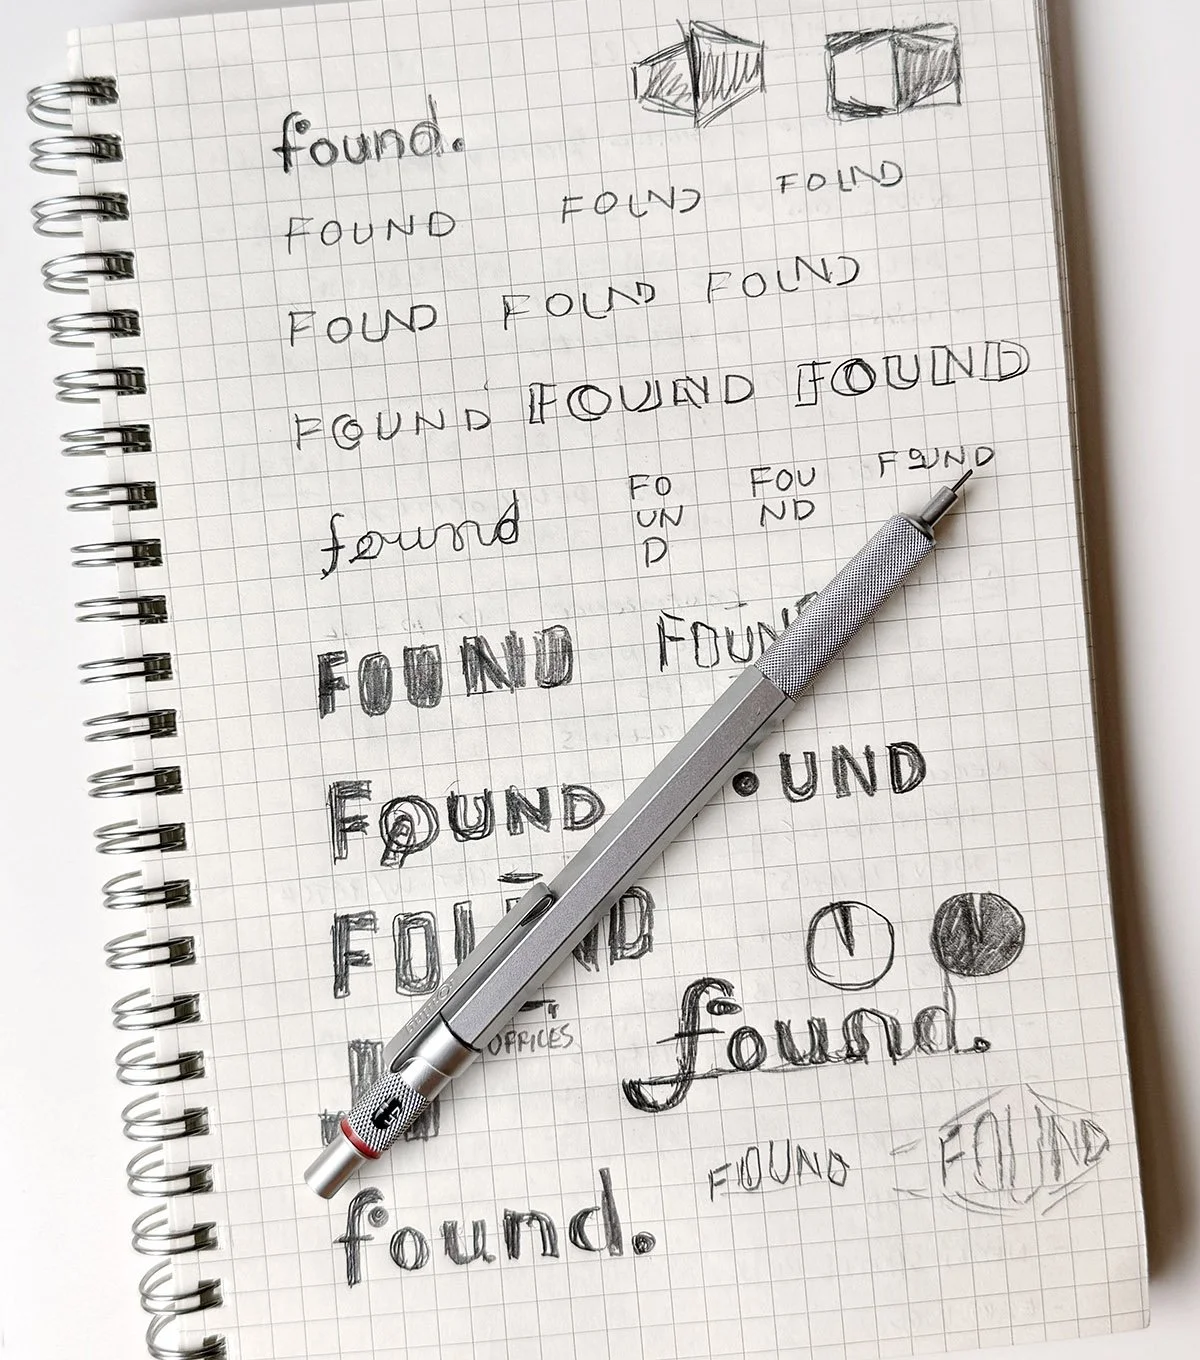 found.
FOUND FOUND FOUND
FOUND FOUND FOUND
FOUND FOUND FOUND
found
FO
UN
D
FOU
ND
FOUND
FOUND FOUN
FOUND UND
FOUND
OFFICES
found.
FOUND FOUND
found.